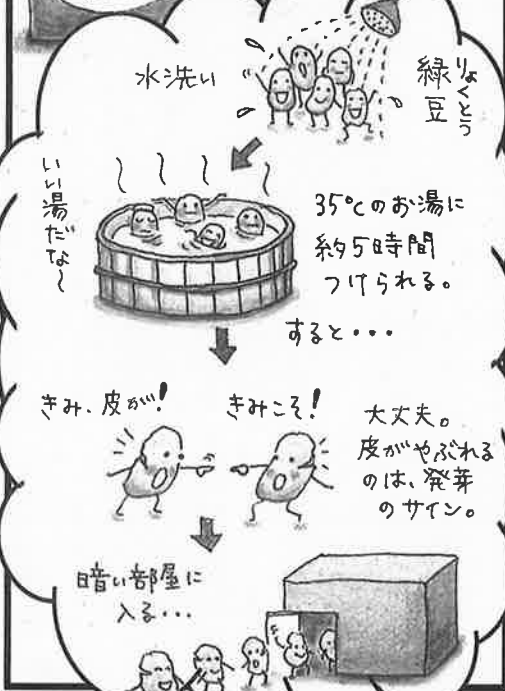 水洗い
緑豆
りょくとう
いい湯だな〜
35℃のお湯に
約5時間
つけられる。
すると・・・
きみ、皮が!
きみこそ!
大丈夫。
皮がやぶれる
のは、発芽
のサイン。
暗い部屋に
入る・・・